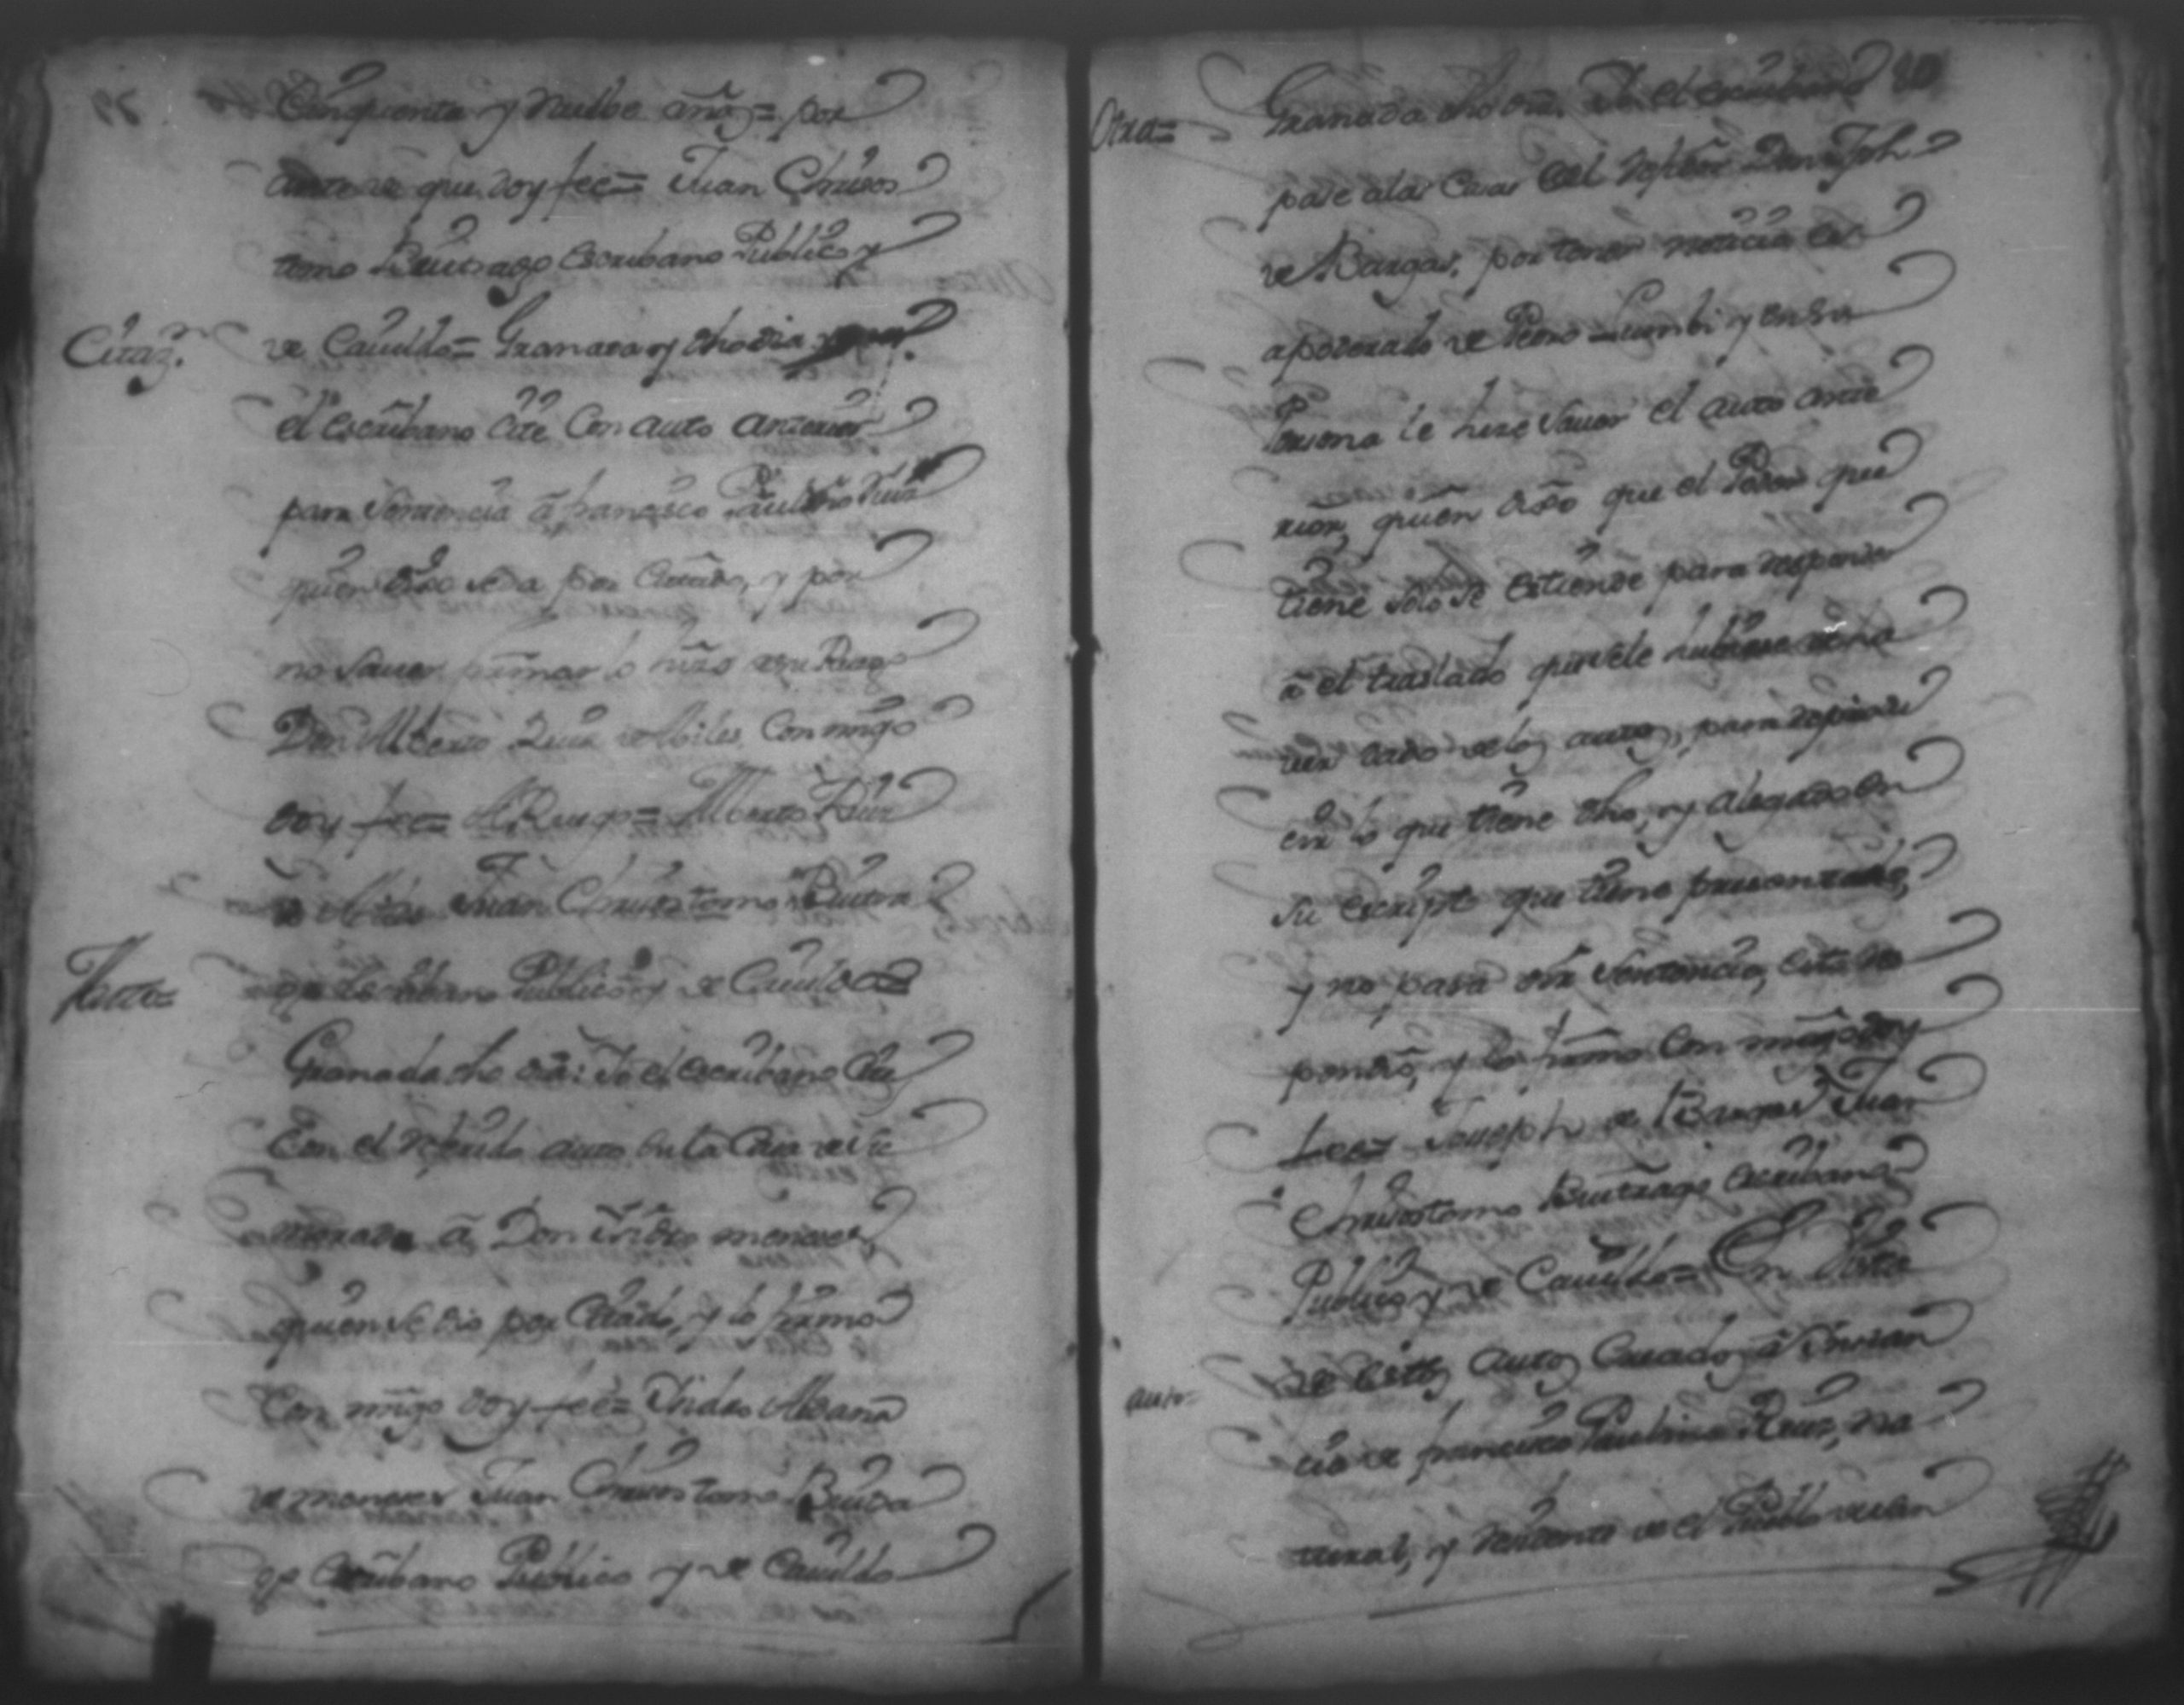 Cinquenta y nuebe años = por
ante mi de que doy fee = Juan Chrisos
tomo Buitrago Escribano Publico y
Citaz.n
de Cauildo = Granada y dho dia
el escribano cite Con auto anterior
para Sentencia â francisco Paulino Ruiz
quien dixo se da por Citado, y por
no Sauer firmar lo hizo a su Ruego
Don Alberto Ruiz de Abiles Conmigo
doy fee = A Ruego = Alberto Ruiz
de Abiles Juan Chrisostomo Buitra
go Escribano Publico y de Cauildo =
Granada dho dia: Yo el escribano Cite
Con el referido auto en la Casa de su
morada â Don Isidro meneses,
quien se dio por Citado, y lo firmo
Con migo doy fee = Isidro Aldana
de meneses Juan Chrisostomo Buitra
go Escribano Publico y de Cauildo
Otra =
Granada dho dia. Yo el escribano
pase a la Casa del Señor Don Jph
de Bargas, por tener noticia es
apoderado de Pedro Lumbi y en su
Persona le hize Sauer el auto ante
rior, quien dixo que el Poder que
tiene solo se estiende para responder
â el traslado que se le hubiese dado
de los autos, para
en lo que tiene dho, y alegado en
su escripto que tiene presentado,
y no para oir Sentencia, esto res
pondio, y lo firmo Con migo doy
fee = Joseph de Bargas Juan
Chrisostomo Buitrago escribano
Publico y de Cauildo = En Vista
auto =
de estos autos Criados â Instan
cia de francisco Paulino Ruiz, na
tural, y residente de el Pueblo de